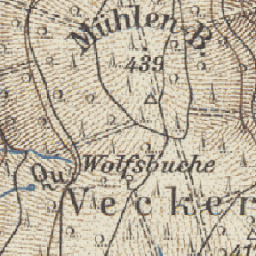 Mühlen-B.
439
Wolfsbuche
Qu.
Vecker
417